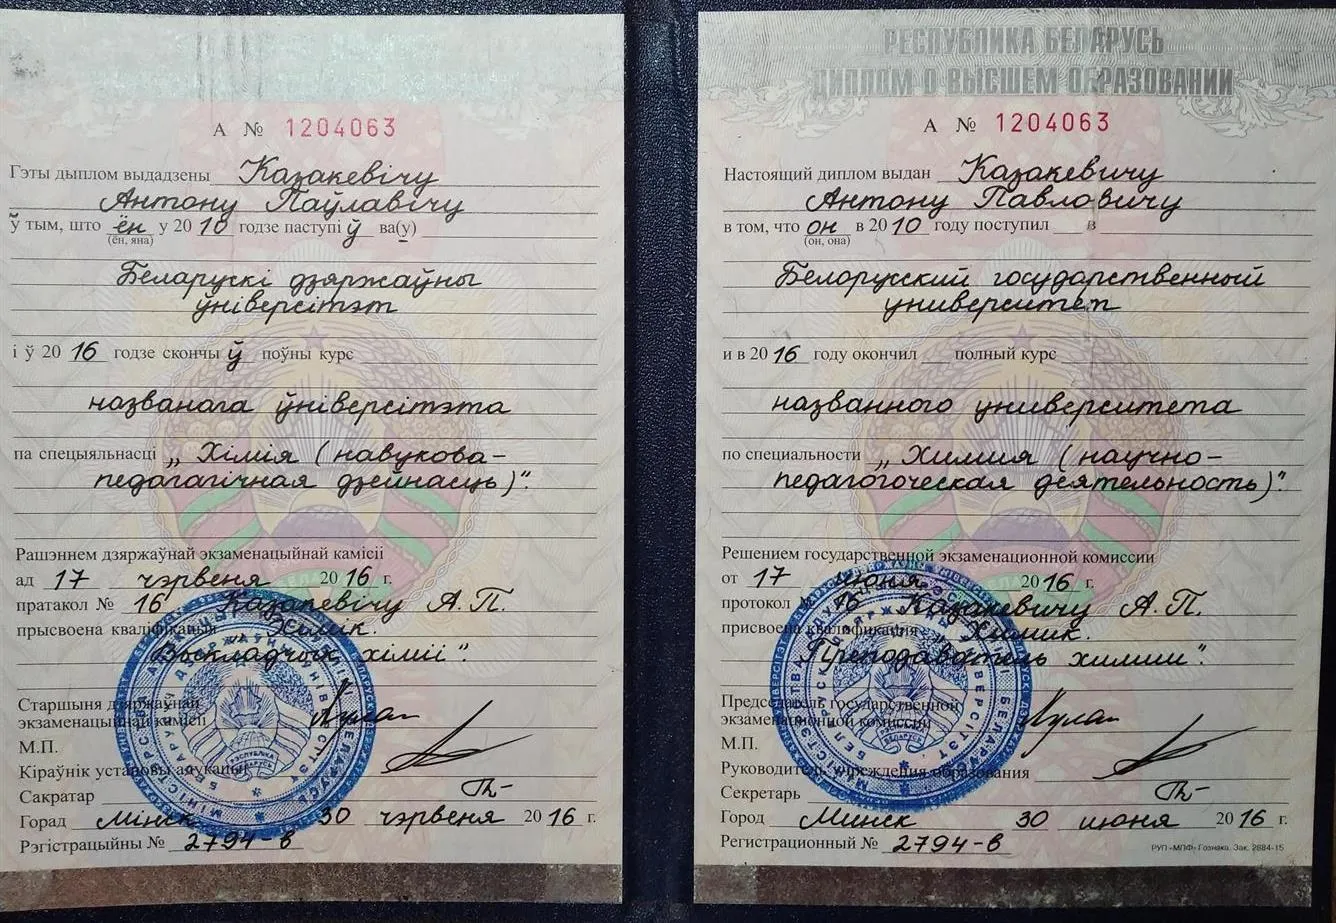 А № 1204063
Гэты дыплом выдадзены Казакевічу
Антону Паўлавічу
ў тым, што ён у 2010 годзе паступіў ва(у)
(ён, яна)
Беларускі дзяржаўны
ўніверсітэт
і ў 2016 годзе скончыў поўны курс
названага ўніверсітэта
па спецыяльнасці „Хімія (навукова-
педагагічная дзейнасць)".
Рашэннем дзяржаўнай экзаменацыйнай камісіі
ад 17 чэрвеня 2016 г.
пратакол № 16 Казакевічу А.П.
прысвоена кваліфікацыя „Хімік.
Выкладчык хіміі".
Старшыня дзяржаўнай
экзаменацыйнай камісіі
М.П.
Кіраўнік установы адукацыі
Сакратар
Горад Мінск 30 чэрвеня 2016 г.
Рэгістрацыйны № 2794-в
РЕСПУБЛИКА БЕЛАРУСЬ
ДИПЛОМ О ВЫСШЕМ ОБРАЗОВАНИИ
А № 1204063
Настоящий диплом выдан Казакевичу
Антону Павловичу
в том, что он в 2010 году поступил в
(он, она)
Белорусский государственный
университет
и в 2016 году окончил полный курс
названного университета
по специальности „Химия (научно-
педагогоческая деятельность)".
Решением государственной экзаменационной комиссии
от 17 июня 2016 г.
протокол № 16 Казакевичу А.П.
присвоена квалификация „Химик.
Преподаватель химии".
Председатель государственной
экзаменационной комиссии
М.П.
Руководитель учреждения образования
Секретарь
Город Минск 30 июня 2016 г.
Регистрационный № 2794-в
РУП «МПФ» Гознака. Зак. 2884-15